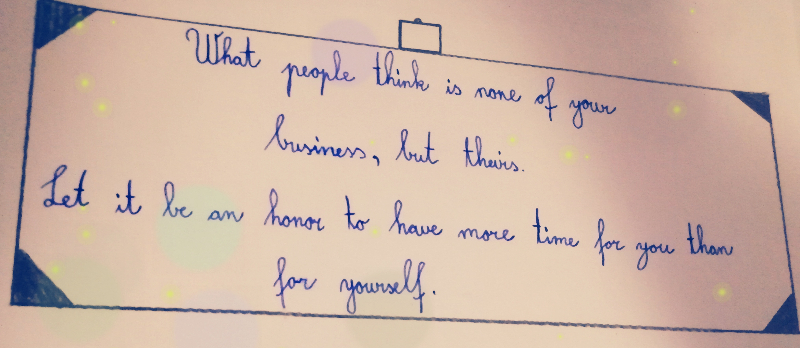 What people think is none of your
business, but theirs.
Let it be an honor to have more time for you than
for yourself.